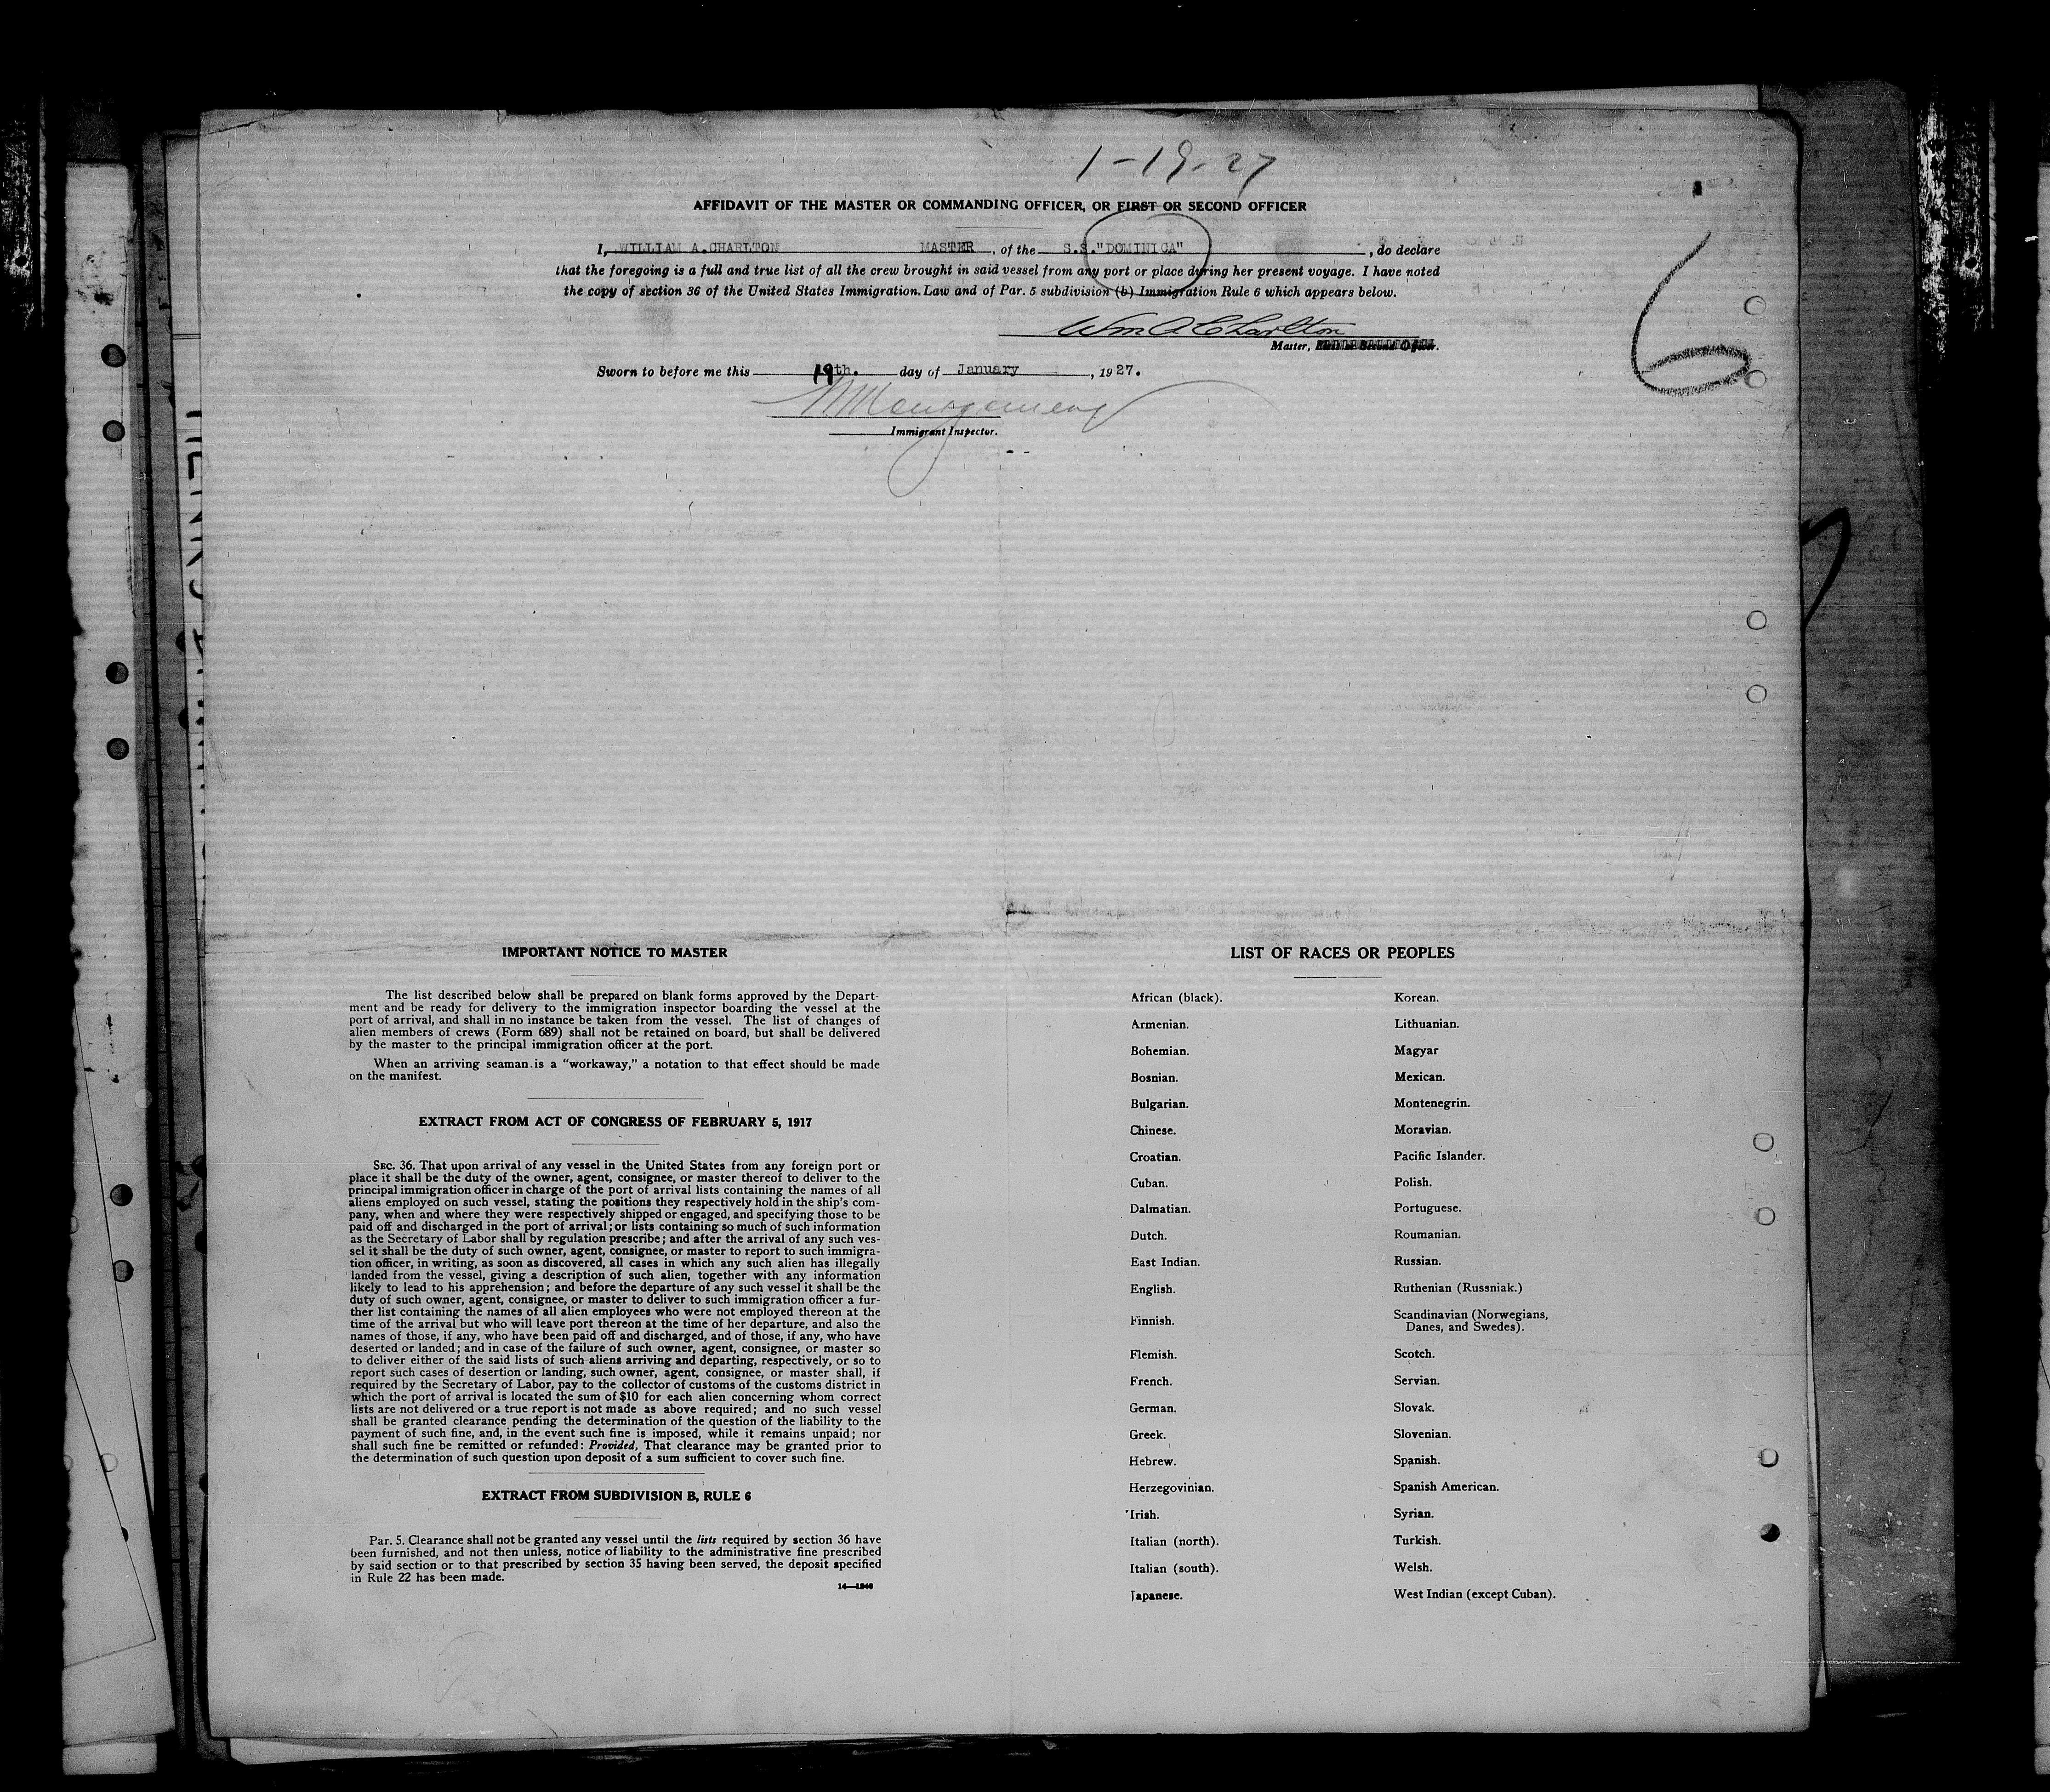 1-19-27
AFFIDAVIT OF THE MASTER OR COMMANDING OFFICER, OR FIRST OR SECOND OFFICER
I, WILLIAM A.CHARLTON MASTER, of the S.S."DOMINICA", do declare
that the foregoing is a full and true list of all the crew brought in said vessel from any port or place during her present voyage. I have noted
the copy of section 36 of the United States Immigration Law and of Par. 5 subdivision (b) Immigration Rule 6 which appears below.
6
Wm A Charlton
Master, First or Second Officer.
Sworn to before me this 19th. day of January, 1927.
Montgomery
Immigrant Inspector.
IMPORTANT NOTICE TO MASTER
The list described below shall be prepared on blank forms approved by the Depart-
ment and be ready for delivery to the immigration inspector boarding the vessel at the
port of arrival, and shall in no instance be taken from the vessel. The list of changes of
alien members of crews (Form 689) shall not be retained on board, but shall be delivered
by the master to the principal immigration officer at the port.
When an arriving seaman is a "workaway," a notation to that effect should be made
on the manifest.
EXTRACT FROM ACT OF CONGRESS OF FEBRUARY 5, 1917
SEC. 36. That upon arrival of any vessel in the United States from any foreign port or
place it shall be the duty of the owner, agent, consignee, or master thereof to deliver to the
principal immigration officer in charge of the port of arrival lists containing the names of all
aliens employed on such vessel, stating the positions they respectively hold in the ship's com-
pany, when and where they were respectively shipped or engaged, and specifying those to be
paid off and discharged in the port of arrival; or lists containing so much of such information
as the Secretary of Labor shall by regulation prescribe; and after the arrival of any such ves-
sel it shall be the duty of such owner, agent, consignee, or master to report to such immigra-
tion officer, in writing, as soon as discovered, all cases in which any such alien has illegally
landed from the vessel, giving a description of such alien, together with any information
likely to lead to his apprehension; and before the departure of any such vessel it shall be the
duty of such owner, agent, consignee, or master to deliver to such immigration officer a fur-
ther list containing the names of all alien employees who were not employed thereon at the
time of the arrival but who will leave port thereon at the time of her departure, and also the
names of those, if any, who have been paid off and discharged, and of those, if any, who have
deserted or landed; and in case of the failure of such owner, agent, consignee, or master so
to deliver either of the said lists of such aliens arriving and departing, respectively, or so to
report such cases of desertion or landing, such owner, agent, consignee, or master shall, if
required by the Secretary of Labor, pay to the collector of customs of the customs district in
which the port of arrival is located the sum of $10 for each alien concerning whom correct
lists are not delivered or a true report is not made as above required; and no such vessel
shall be granted clearance pending the determination of the question of the liability to the
payment of such fine, and, in the event such fine is imposed, while it remains unpaid; nor
shall such fine be remitted or refunded: Provided, That clearance may be granted prior to
the determination of such question upon deposit of a sum sufficient to cover such fine.
EXTRACT FROM SUBDIVISION B, RULE 6
Par. 5. Clearance shall not be granted any vessel until the lists required by section 36 have
been furnished, and not then unless, notice of liability to the administrative fine prescribed
by said section or to that prescribed by section 35 having been served, the deposit specified
in Rule 22 has been made.
14—1240
LIST OF RACES OR PEOPLES
African (black).
Armenian.
Bohemian.
Bosnian.
Bulgarian.
Chinese.
Croatian.
Cuban.
Dalmatian.
Dutch.
East Indian.
English.
Finnish.
Flemish.
French.
German.
Greek.
Hebrew.
Herzegovinian.
Irish.
Italian (north).
Italian (south).
Japanese.
Korean.
Lithuanian.
Magyar
Mexican.
Montenegrin.
Moravian.
Pacific Islander.
Polish.
Portuguese.
Roumanian.
Russian.
Ruthenian (Russniak.)
Scandinavian (Norwegians,
Danes, and Swedes).
Scotch.
Servian.
Slovak.
Slovenian.
Spanish.
Spanish American.
Syrian.
Turkish.
Welsh.
West Indian (except Cuban).